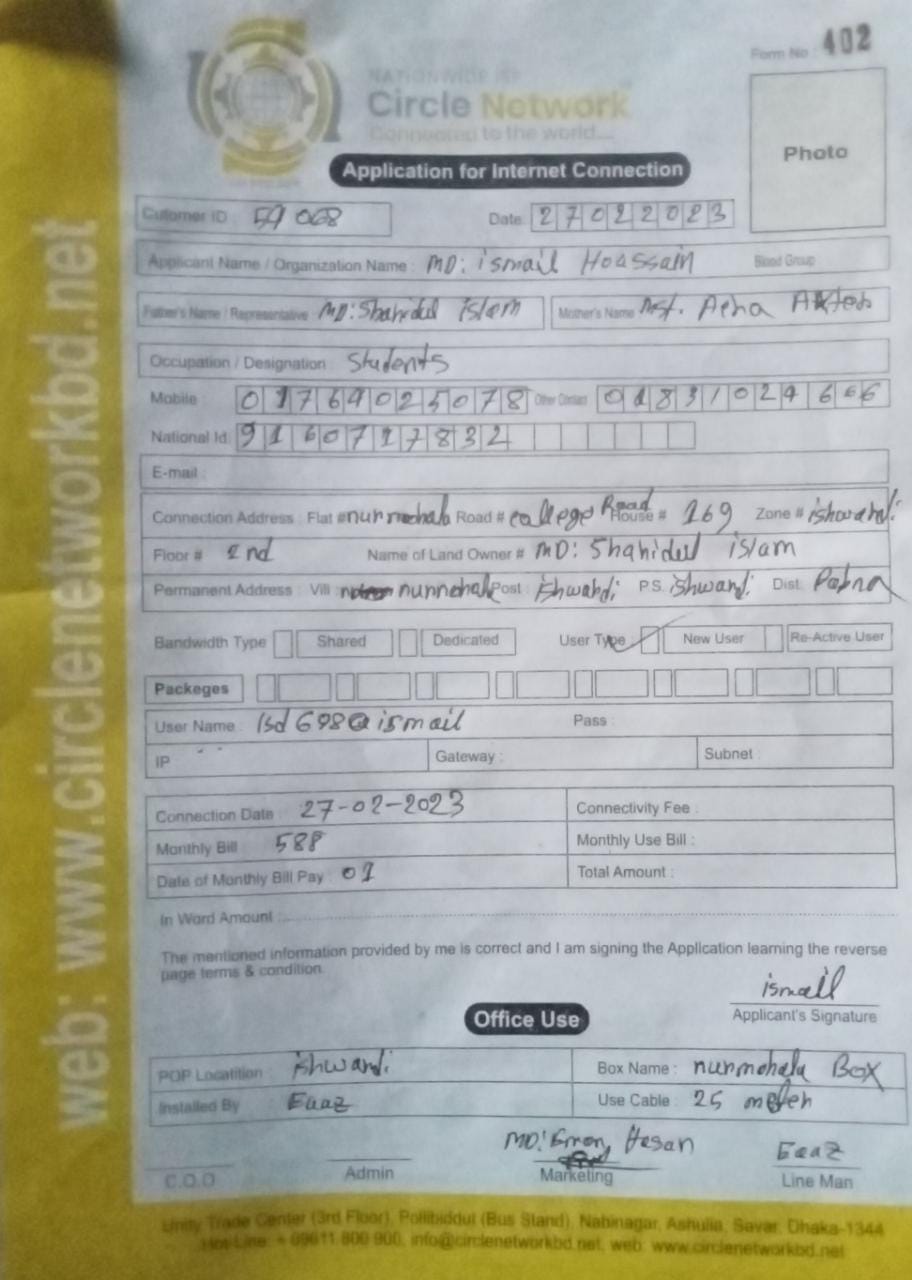 Form No : 402
NATIONWIDE ISP
Circle Network
Connected to the world....
Photo
Application for Internet Connection
Cutomer ID : 59 068 Date : 27022023
Applicant Name / Organization Name : MD: ismail Hoassain Blood Group
Father's Name / Representative MD: Shahidul islam Mother's Name Mst. Aena Akter
Occupation / Designation : Students
Mobile : 01769025078 Other Contact 01831024666
National Id: 9160717832
E-mail :
Connection Address : Flat # nurmohala Road # college Road House # 169 Zone # ishwardi
Floor # 2nd Name of Land Owner # MD: Shahidul islam
Permanent Address : Vill : nurmohala Post : ishwardi P.S. ishwardi Dist. Pabna
Bandwidth Type Shared Dedicated User Type New User Re-Active User
Packeges
User Name : Isd698@ismail Pass :
IP Gateway : Subnet
Connection Date : 27-02-2023 Connectivity Fee :
Monthly Bill 588 Monthly Use Bill :
Date of Monthly Bill Pay : 01 Total Amount :
In Word Amount :
The mentioned information provided by me is correct and I am signing the Application learning the reverse
page terms & condition.
ismail
Applicant's Signature
Office Use
POP Locatition : ishwardi Box Name : nurmohala Box
Installed By Eaaz Use Cable : 25 meter
MD: Emon Hasan Eaaz
C.O.O Admin Marketing Line Man
Unity Trade Center (3rd Floor), Pollibiddut (Bus Stand), Nabinagar, Ashulia, Savar, Dhaka-1344
Hot Line: + 09611 800 900, info@circlenetworkbd.net, web: www.circlenetworkbd.net
web: www.circlenetworkbd.net